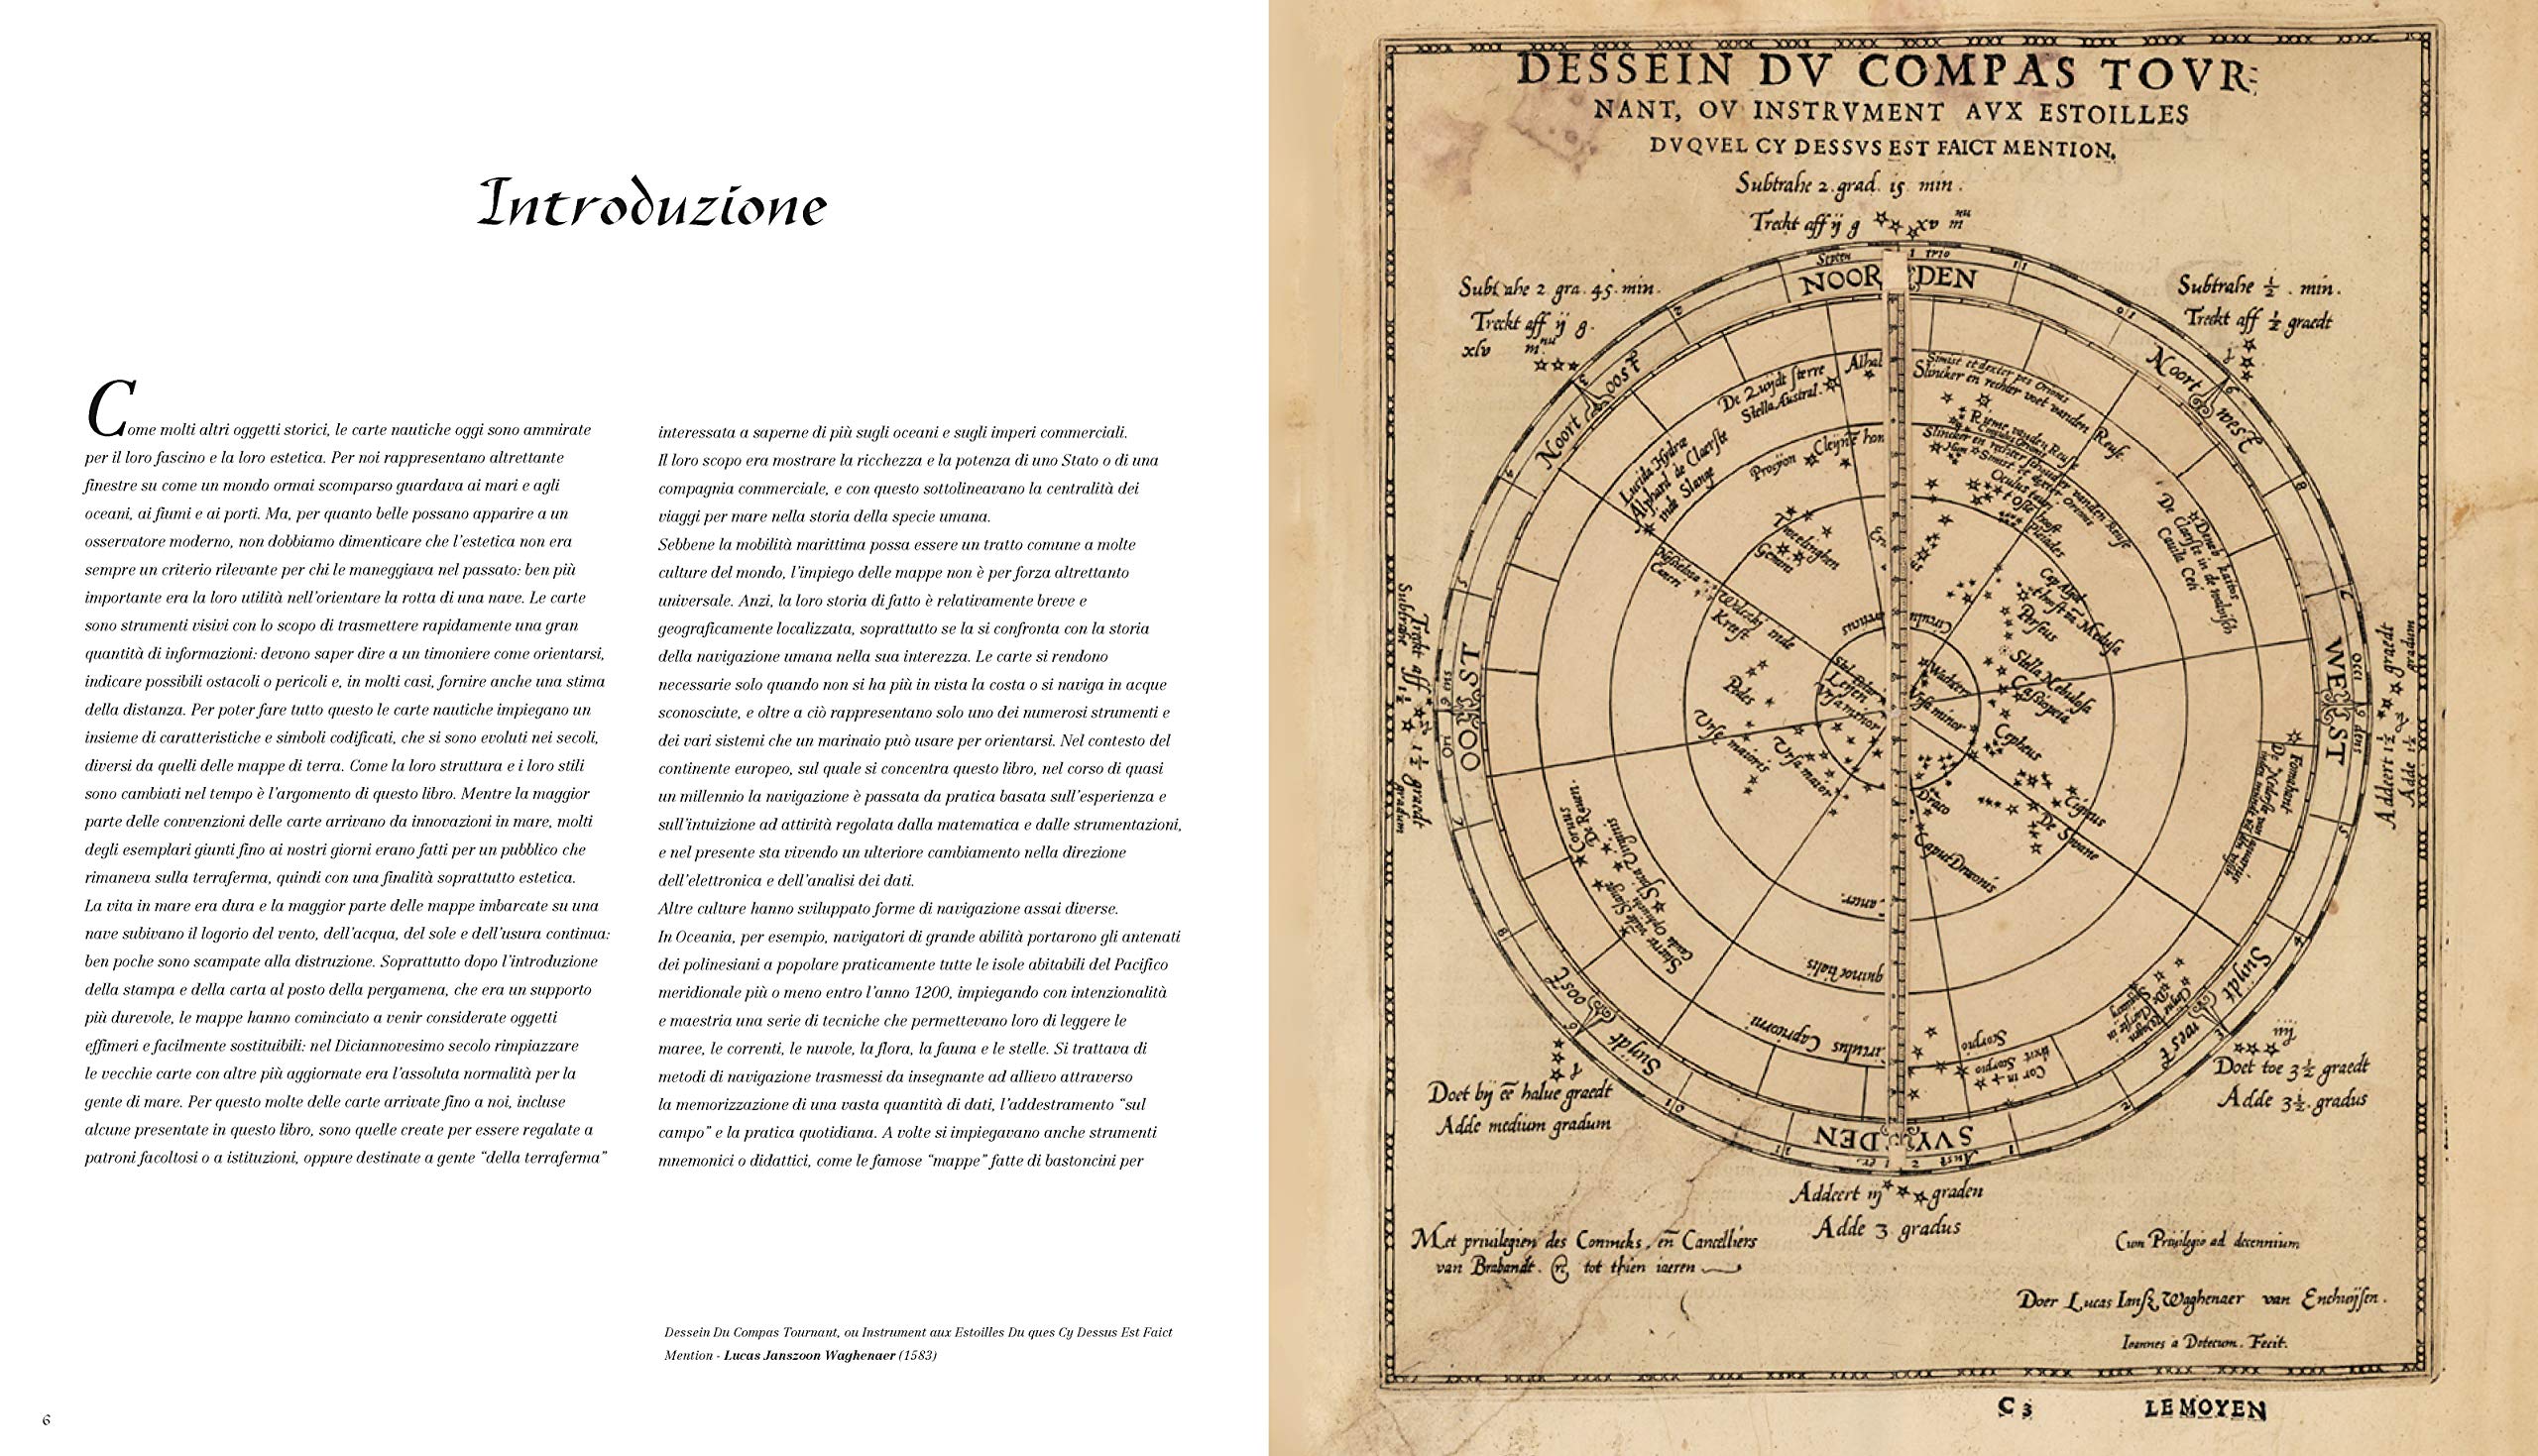 Introduzione
Come molti altri oggetti storici, le carte nautiche oggi sono ammirate
per il loro fascino e la loro estetica. Per noi rappresentano altrettante
finestre su come un mondo ormai scomparso guardava ai mari e agli
oceani, ai fiumi e ai porti. Ma, per quanto belle possano apparire a un
osservatore moderno, non dobbiamo dimenticare che l'estetica non era
sempre un criterio rilevante per chi le maneggiava nel passato: ben più
importante era la loro utilità nell'orientare la rotta di una nave. Le carte
sono strumenti visivi con lo scopo di trasmettere rapidamente una gran
quantità di informazioni: devono saper dire a un timoniere come orientarsi,
indicare possibili ostacoli o pericoli e, in molti casi, fornire anche una stima
della distanza. Per poter fare tutto questo le carte nautiche impiegano un
insieme di caratteristiche e simboli codificati, che si sono evoluti nei secoli,
diversi da quelli delle mappe di terra. Come la loro struttura e i loro stili
sono cambiati nel tempo è l'argomento di questo libro. Mentre la maggior
parte delle convenzioni delle carte arrivano da innovazioni in mare, molti
degli esemplari giunti fino ai nostri giorni erano fatti per un pubblico che
rimaneva sulla terraferma, quindi con una finalità soprattutto estetica.
La vita in mare era dura e la maggior parte delle mappe imbarcate su una
nave subivano il logorio del vento, dell'acqua, del sole e dell'usura continua:
ben poche sono scampate alla distruzione. Soprattutto dopo l'introduzione
della stampa e della carta al posto della pergamena, che era un supporto
più durevole, le mappe hanno cominciato a venir considerate oggetti
effimeri e facilmente sostituibili: nel Diciannovesimo secolo rimpiazzare
le vecchie carte con altre più aggiornate era l'assoluta normalità per la
gente di mare. Per questo molte delle carte arrivate fino a noi, incluse
alcune presentate in questo libro, sono quelle create per essere regalate a
patroni facoltosi o a istituzioni, oppure destinate a gente “della terraferma”
interessata a saperne di più sugli oceani e sugli imperi commerciali.
Il loro scopo era mostrare la ricchezza e la potenza di uno Stato o di una
compagnia commerciale, e con questo sottolineavano la centralità dei
viaggi per mare nella storia della specie umana.
Sebbene la mobilità marittima possa essere un tratto comune a molte
culture del mondo, l'impiego delle mappe non è per forza altrettanto
universale. Anzi, la loro storia di fatto è relativamente breve e
geograficamente localizzata, soprattutto se la si confronta con la storia
della navigazione umana nella sua interezza. Le carte si rendono
necessarie solo quando non si ha più in vista la costa o si naviga in acque
sconosciute, e oltre a ciò rappresentano solo uno dei numerosi strumenti e
dei vari sistemi che un marinaio può usare per orientarsi. Nel contesto del
continente europeo, sul quale si concentra questo libro, nel corso di quasi
un millennio la navigazione è passata da pratica basata sull'esperienza e
sull'intuizione ad attività regolata dalla matematica e dalle strumentazioni,
e nel presente sta vivendo un ulteriore cambiamento nella direzione
dell'elettronica e dell'analisi dei dati.
Altre culture hanno sviluppato forme di navigazione assai diverse.
In Oceania, per esempio, navigatori di grande abilità portarono gli antenati
dei polinesiani a popolare praticamente tutte le isole abitabili del Pacifico
meridionale più o meno entro l'anno 1200, impiegando con intenzionalità
e maestria una serie di tecniche che permettevano loro di leggere le
maree, le correnti, le nuvole, la flora, la fauna e le stelle. Si trattava di
metodi di navigazione trasmessi da insegnante ad allievo attraverso
la memorizzazione di una vasta quantità di dati, l'addestramento “sul
campo” e la pratica quotidiana. A volte si impiegavano anche strumenti
mnemonici o didattici, come le famose “mappe” fatte di bastoncini per
Dessein Du Compas Tournant, ou Instrument aux Estoilles Du ques Cy Dessus Est Faict
Mention - Lucas Janszoon Waghenaer (1583)
6
DESSEIN DV COMPAS TOVR:
NANT, OV INSTRVMENT AVX ESTOILLES
DVQVEL CY DESSVS EST FAICT MENTION.
Subtrahe 2. grad. 15 min.
Treckt aff ij g xv m
Subtrahe 2 gra. 45. min.
Treckt aff ij g.
xlv m
Subtrahe ½ . min.
Treckt aff ½ graedt
NOORDEN
Noort oost
Noort west
De 2 wijdt sterre
Stella Austral.
Alhal
Slincker en rechter voet vanden Reuse.
Lucida Hydra
Alphard de Claerste
inde Slange
Procyon
Cleyne hon
Tweelinghen
Gemini
Oculus tauri
Pleiades
Perseus
Kreest
Stella Nebulosa
Cassiopeia
Poles
Vrsa minor
Vrsa minor
Vrse maioris
Vrsa maior
Cepheus
Draco
Cignus
De Swane
Caput Draconis
OOST
WEST
Treckt aff 1½ graedt
Subtrahe gradum
Addeert 1½ graedt
Adde 1½ gradum
Corvus
De Raven.
Spica Virginis
Capricorni
Scorpio
Cor in Scorpio
Suydt oost
Suydt west
SVYDEN
Doet bij ee halue graedt
Adde medium gradum
Doet toe 3½ graedt
Adde 3½. gradus
Addeert iij graden
Adde 3 gradus
Met priuilegien des Conincks, en Cancelliers
van Brabandt. tot thien iaeren
Cum Priuilegio ad decennium
Doer Lucas Iansz Waghenaer van Enchuijsen.
Ioannes a Dotecum. Fecit.
C 3 LE MOYEN